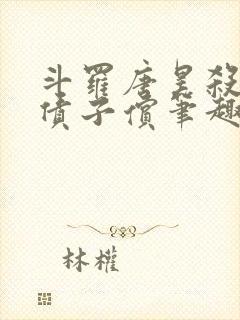 斗羅唐昊殺
債子償筆趣
林權